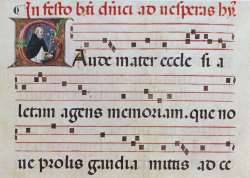 In festo bti dnici ad vesperas hy
Aude mater eccle si a
letam agens memoriam. que no
ue prolis gaudia mittis ad ce